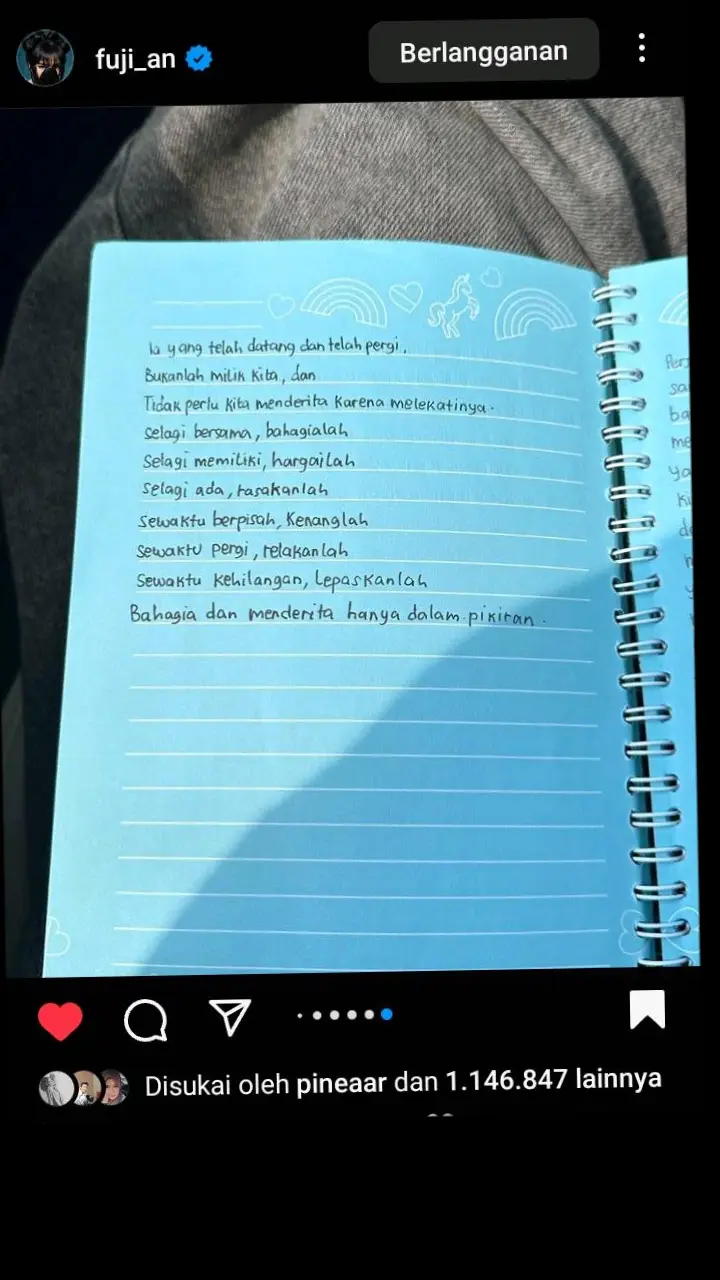 fuji_an
Berlangganan
Ia yang telah datang dan telah pergi,
Bukanlah milik kita, dan
Tidak perlu kita menderita karena melekatinya.
Selagi bersama, bahagialah
Selagi memiliki, hargailah
Selagi ada, rasakanlah
Sewaktu berpisah, Kenanglah
Sewaktu pergi, relakanlah
Sewaktu kehilangan, Lepaskanlah
Bahagia dan menderita hanya dalam pikiran.
Disukai oleh pineaar dan 1.146.847 lainnya